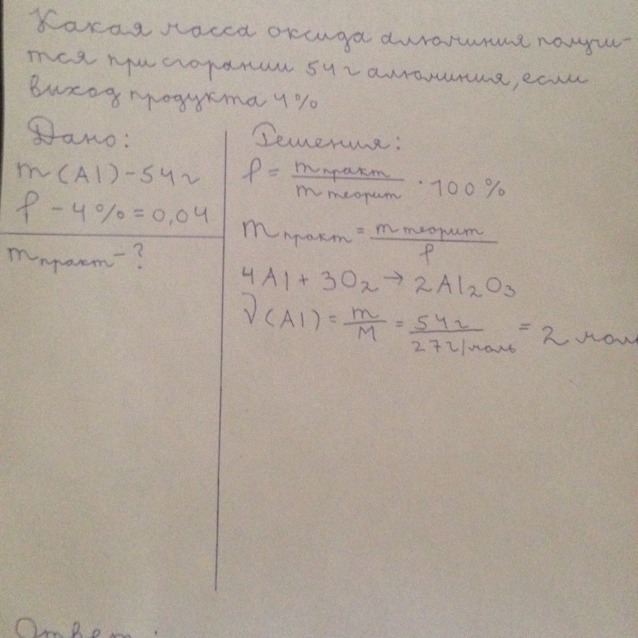 Какая масса оксида алюминия получи-
тся при сгорании 54 г алюминия, если
выход продукта 4%
Дано:
m(Al) - 54 г
f - 4% = 0,04
m практ - ?
Решения:
f = m практ / m теорит · 100%
m практ = m теорит / f
4Al + 3O₂ → 2Al₂O₃
ν(Al) = m / M = 54 г / 27 г/моль = 2 мол
Ответ: